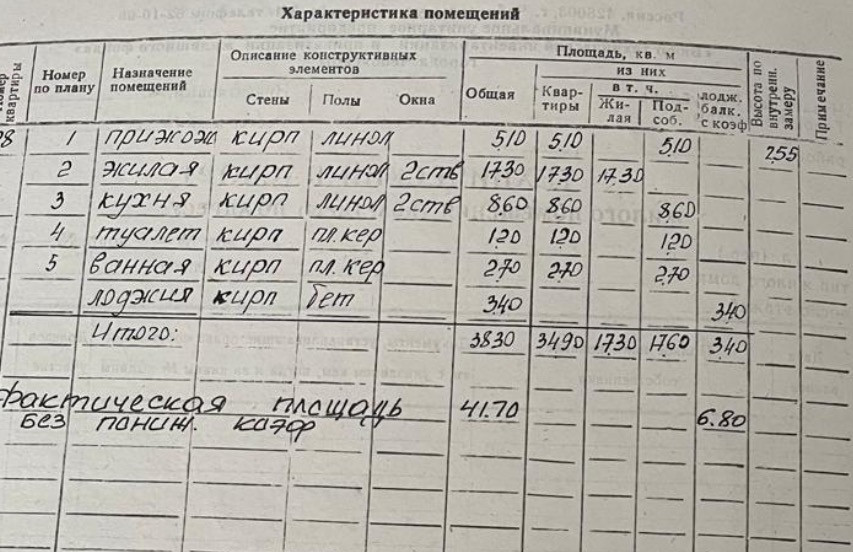 Характеристика помещений
квартиры
Номер по плану
Назначение помещений
Описание конструктивных элементов
Стены Полы Окна
Площадь, кв. м
Общая
из них
Квартиры
в т. ч.
Жилая Подсоб.
лодж. балк. с коэф
Высота по внутренн. замеру
Примечание
1 прихож кирп линол 5,10 5,10 5,10 2,55
2 жилая кирп линол 2ств 17.30 17.30 17.30
3 кухня кирп линол 2ств 8,60 8,60 8,60
4 туалет кирп пл.кер 1,20 1,20 1,20
5 ванная кирп пл.кер 2,70 2,70 2,70
лоджия кирп бет 3,40 3,40
Итого: 38,30 34,90 17,30 17,60 3,40
Фактическая площадь 41.70 6.80
без пониж. коэф